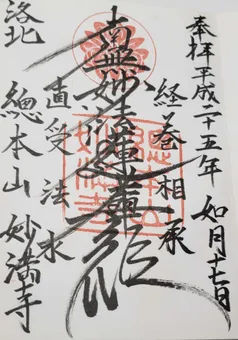 奉拝 平成二十五年 如月十七日
経巻相承
南無妙法蓮華経
直受法水
洛北 總本山 妙満寺